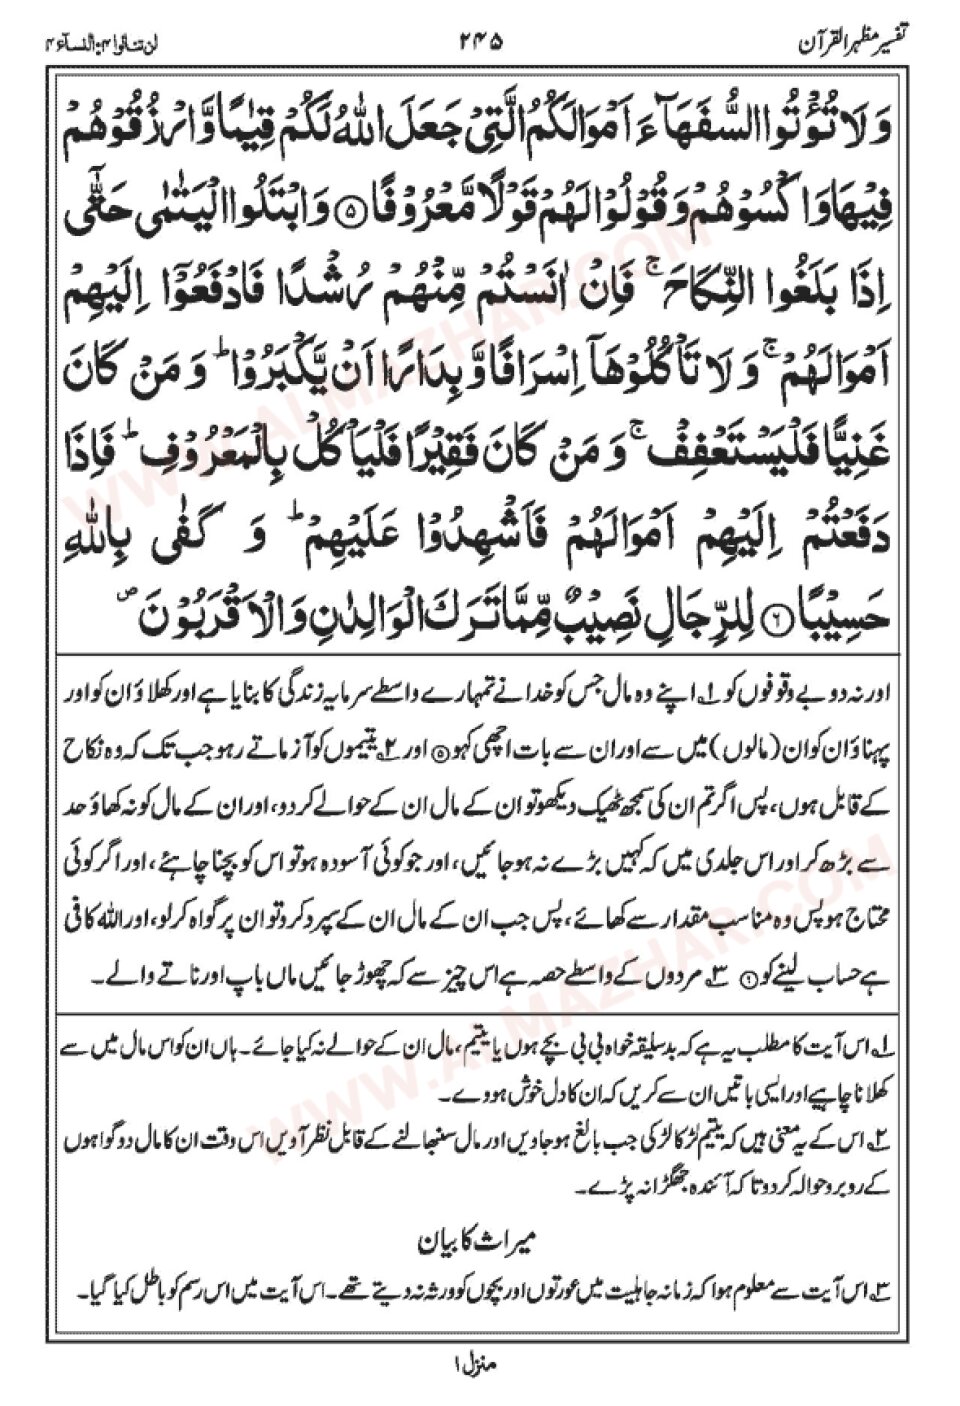 تفسیر مظہر القرآن ۲۴۵ لن تنالوا ۴: النسآء ۴
وَلَا تُؤْتُوا السُّفَهَآءَ اَمْوَالَكُمُ الَّتِیْ جَعَلَ اللّٰهُ لَكُمْ قِیٰمًا وَّارْزُقُوْهُمْ
فِیْهَا وَاكْسُوْهُمْ وَقُوْلُوْا لَهُمْ قَوْلًا مَّعْرُوْفًا ۵ وَابْتَلُوا الْیَتٰمٰی حَتّٰۤی
اِذَا بَلَغُوا النِّكَاحَ ۚ فَاِنْ اٰنَسْتُمْ مِّنْهُمْ رُشْدًا فَادْفَعُوْۤا اِلَیْهِمْ
اَمْوَالَهُمْ ۚ وَلَا تَاْكُلُوْهَاۤ اِسْرَافًا وَّبِدَارًا اَنْ یَّكْبَرُوْا ؕ وَمَنْ كَانَ
غَنِیًّا فَلْیَسْتَعْفِفْ ۚ وَمَنْ كَانَ فَقِیْرًا فَلْیَاْكُلْ بِالْمَعْرُوْفِ ؕ فَاِذَا
دَفَعْتُمْ اِلَیْهِمْ اَمْوَالَهُمْ فَاَشْهِدُوْا عَلَیْهِمْ ؕ وَ كَفٰی بِاللّٰهِ
حَسِیْبًا ۶ لِلرِّجَالِ نَصِیْبٌ مِّمَّا تَرَكَ الْوَالِدٰنِ وَالْاَقْرَبُوْنَ ۪
اور نہ دو بے وقوفوں کو ۱؂ اپنے وہ مال جس کو خدا نے تمہارے واسطے سرمایہ زندگی کا بنایا ہے اور کھلاؤ ان کو اور
پہناؤ ان کو ان (مالوں) میں سے اور ان سے بات اچھی کہو ۵ اور ۲؂ یتیموں کو آزماتے رہو جب تک کہ وہ نکاح
کے قابل ہوں، پس اگر تم ان کی سمجھ ٹھیک دیکھو تو ان کے مال ان کے حوالے کر دو، اور ان کے مال کو نہ کھاؤ حد
سے بڑھ کر اور اس جلدی میں کہ کہیں بڑے نہ ہو جائیں، اور جو کوئی آسودہ ہو تو اس کو بچنا چاہئے، اور اگر کوئی
محتاج ہو پس وہ مناسب مقدار سے کھائے، پس جب ان کے مال ان کے سپرد کرو تو ان پر گواہ کر لو، اور اللہ کافی
ہے حساب لینے کو ۶ ۳؂ مردوں کے واسطے حصہ ہے اس چیز سے کہ چھوڑ جائیں ماں باپ اور ناتے والے۔
۱؂ اس آیت کا مطلب یہ ہے کہ بد سلیقہ خواہ بی بی بچے ہوں یا یتیم، مال ان کے حوالے نہ کیا جائے۔ ہاں ان کو اس مال میں سے
کھلانا چاہیے اور ایسی باتیں ان سے کریں کہ ان کا دل خوش ہووے۔
۲؂ اس کے یہ معنی ہیں کہ یتیم لڑکا لڑکی جب بالغ ہو جاویں اور مال سنبھالنے کے قابل نظر آویں اس وقت ان کا مال دو گواہوں
کے روبرو حوالہ کر دو تا کہ آئندہ جھگڑا نہ پڑے۔
میراث کا بیان
۳؂ اس آیت سے معلوم ہوا کہ زمانہ جاہلیت میں عورتوں اور بچوں کو ورثہ نہ دیتے تھے۔ اس آیت میں اس رسم کو باطل کیا گیا۔
منزل ۱
WWW.ALMAZHAR.COM
WWW.ALMAZHAR.COM